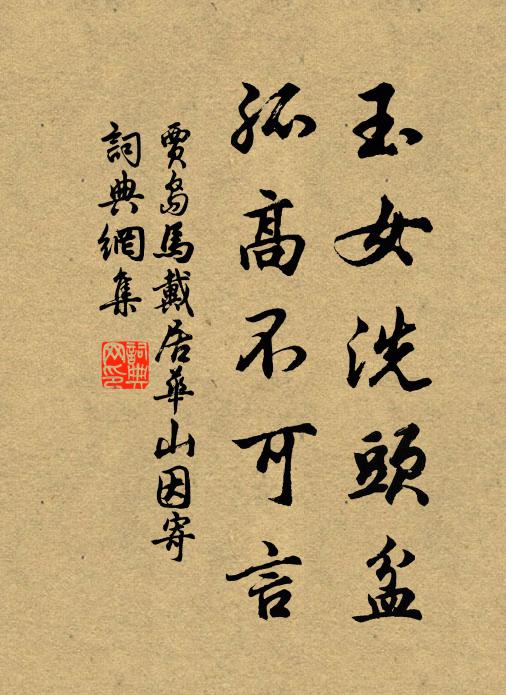 玉女洗頭盆
孤高不可言
賈島馬戴居華山因寄
詞典網集
詞典
网印